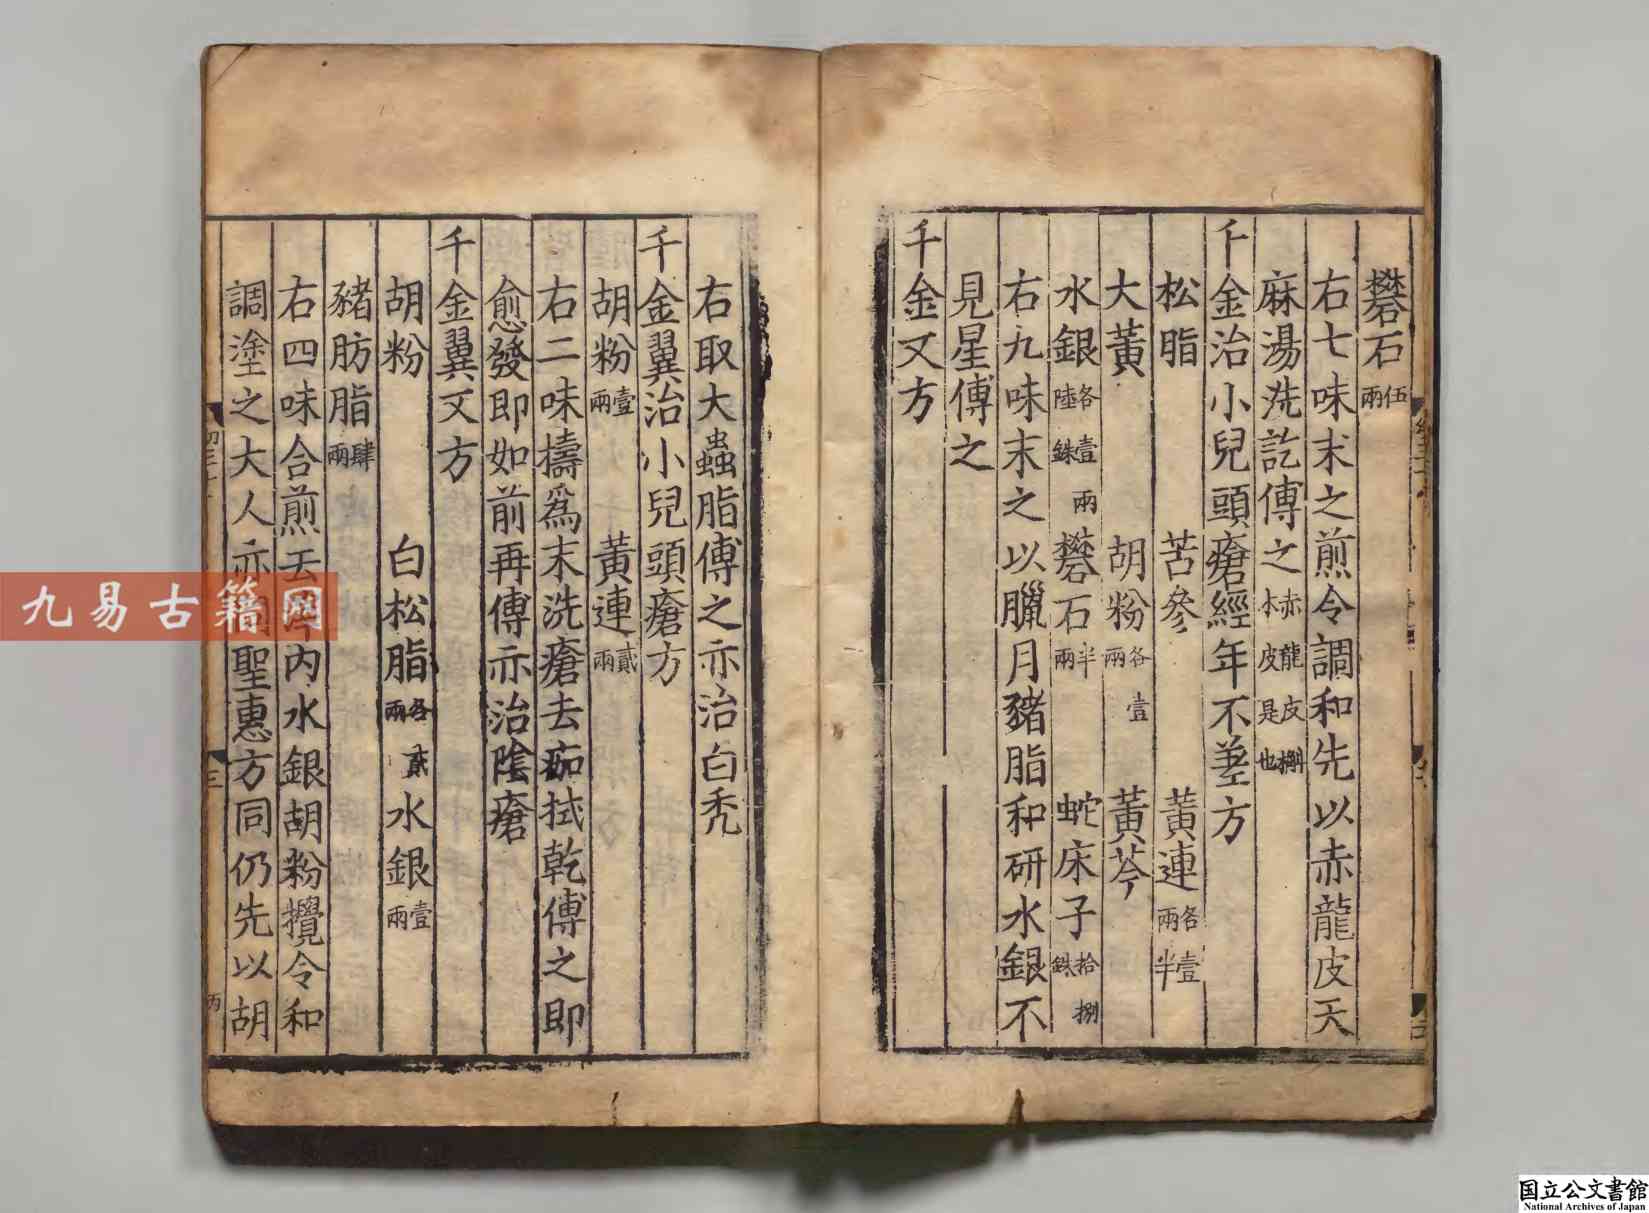 礬石伍兩
右七味末之煎令調和先以赤龍皮天
麻湯洗訖傅之赤龍皮槲木皮是也
千金治小兒頭瘡經年不差方
松脂 苦參 黃連各壹兩半
大黃 胡粉各壹兩 黃芩
水銀各壹兩陸銖 礬石半兩 蛇床子拾捌銖
右九味末之以臘月豬脂和研水銀不
見星傅之
千金又方
右取大蟲脂傅之亦治白禿
千金翼治小兒頭瘡方
胡粉壹兩 黃連貳兩
右二味擣爲末洗瘡去痂拭乾傅之即
愈發即如前再傅亦治陰瘡
千金翼又方
胡粉 白松脂各貳兩 水銀壹兩
豬肪脂肆兩
右四味合煎去滓内水銀胡粉攪令和
調塗之大人亦同聖惠方同仍先以胡
九易古籍网
国立公文書館
National Archives of Japan